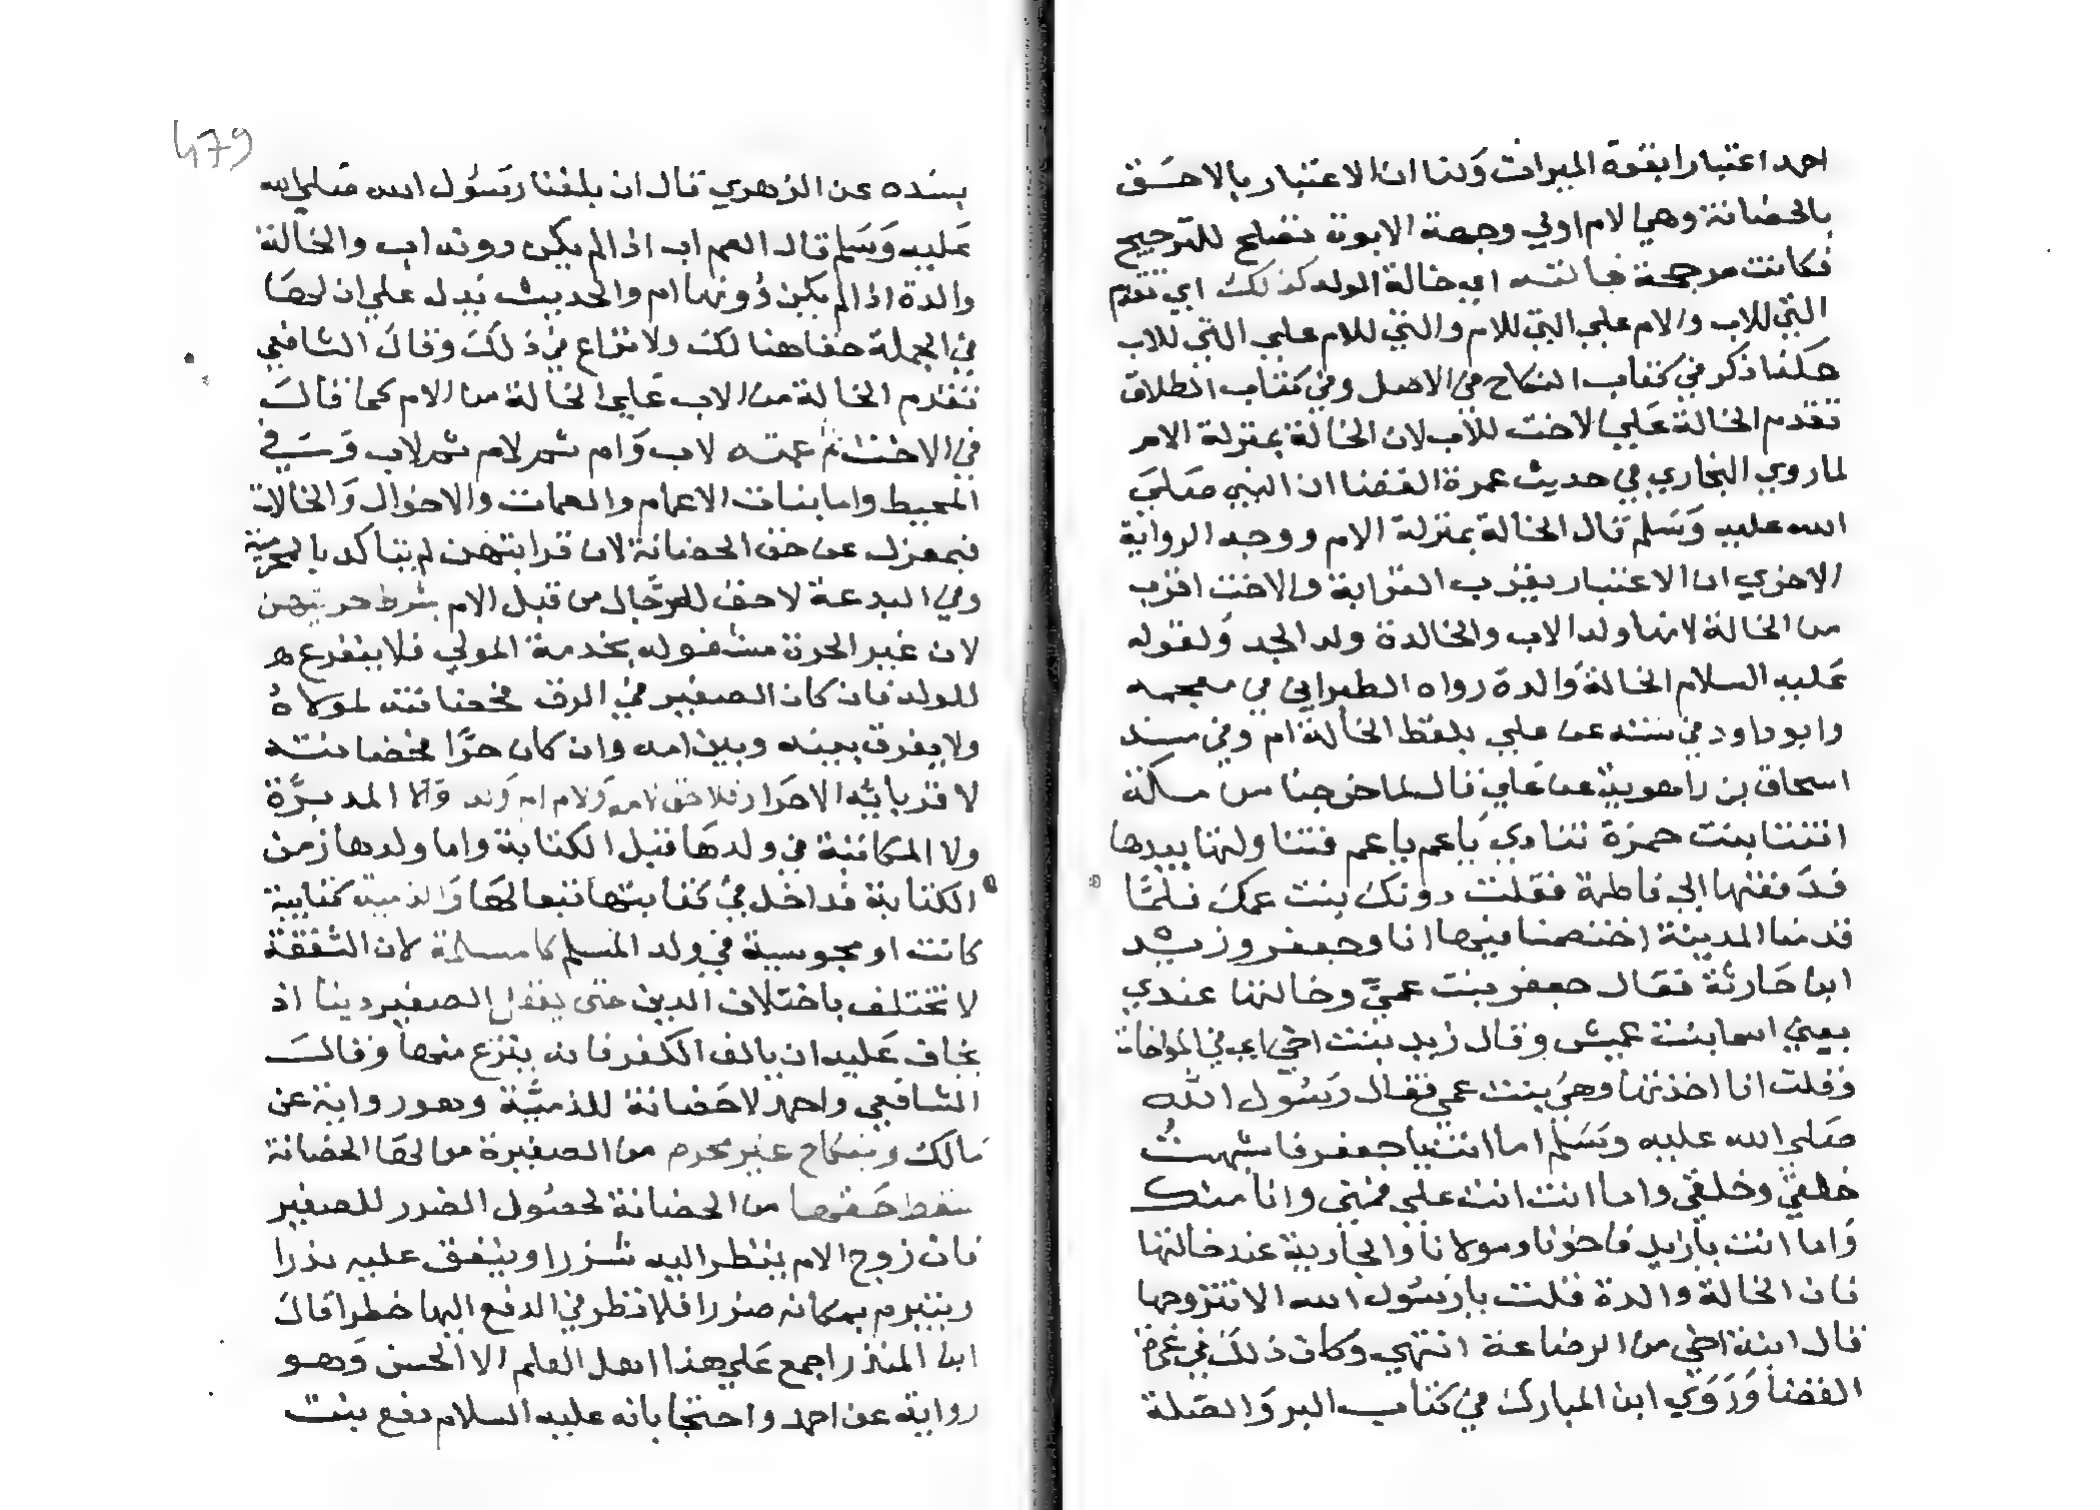 احمد اعتبارا بقوة الميراث ولنا ان الاعتبار بالاحق
بالحضانة وهي الام اولي وجهة الابوة تصلح للترجيح
فكانت مرجحة فخالته اي خالة الولد كذلك اي تقدم
التي للاب والام علي التي للام والتي للام علي التي للاب
هكذا ذكر في كتاب النكاح في الاصل وفي كتاب الطلاق
تقدم الخالة علي الاخت للاب لان الخالة بمنزلة الام
لما روي البخاري في حديث عمرة القضا ان النبي صلي
الله عليه وسلم قال الخالة بمنزلة الام ووجه الرواية
الاخري ان الاعتبار بقرب القرابة والاخت اقرب
من الخالة لانها ولد الاب والخالة ولد الجد ولقوله
عليه السلام الخالة والدة رواه الطبراني في معجمه
وابو داود في سننه عن علي بلفظ الخالة ام وفي مسند
اسحاق بن راهوية عن علي قال لما خرجنا من مكة
اتتنا بنت حمزة تنادي ياعم ياعم فتناولتها بيدها
فدفعتها الي فاطمة فقلت دونك بنت عمك فلما
قدمنا المدينة اختصمنا فيها انا وجعفر وزيد
ابن حارثة فقال جعفر بنت عمي وخالتها عندي
يعني اسما بنت عميس وقال زيد بنت اخي اي في المواخاة
وقلت انا اخذتها وهي بنت عمي فقال رسول الله
صلي الله عليه وسلم اما انت يا جعفر فاشبهت
خلقي وخلقي واما انت انت علي فمني وانا منك
واما انت يا زيد فاخونا ومولانا والجارية عند خالتها
فان الخالة والدة فقلت يا رسول الله الا تتزوجها
قال ابنة اخي من الرضاعة انتهي وكان ذلك في عمرة
القضا وروي ابن المبارك في كتاب البر والصلة
479
بسنده عن الزهري قال ان بلغنا رسول الله صلي الله
عليه وسلم قال العم اب اذا لم يكن دونه اب والخالة
والدة اذا لم يكن دونها ام والحديث يدل علي ان لها
في الجملة حقا هنالك ولا نزاع في ذلك وقال الشافعي
تقدم الخالة من الاب علي الخالة من الام كما قال
في الاخت ثم عمته لاب وام ثم لام ثم لاب وفي
المحيط واما بنات الاعمام والعمات والاخوال والخالات
فبمعزل عن حق الحضانة لان قرابتهن لم يتاكد بالمحرمية
وفي البدعة لا حق للرجال من قبل الام بشرط حريتهن
لان غير الحرة مشغوله بخدمة المولي فلا يتفرع
للولد فان كان الصغير في الرق فحضانته لمولاه
ولا يفرق بينه وبين امه وان كان حرا فحضانته
لاقربايه الاحرار فلا حق لامه ولام ام ولد ولا المدبرة
ولا المكاتبة في ولدها قبل الكتابة واما ولدها زمن
الكتابة فداخل في كتابتها تبعا لها والذمية كتابية
كانت او مجوسية في ولد المسلم كالمسلمة لان الشفقة
لا تختلف باختلاف الدين حتي يعقل الصغير دينا اذ
يخاف عليه ان يالف الكفر فانه ينزع منها وقال
الشافعي واحمد لا حضانة للذمية وهو رواية عن
مالك وبنكاح غير محرم من الصغيرة من لها الحضانة
سقط حقها من الحضانة لحصول الضرر للصغير
فان زوج الام ينظر اليه شزرا وينفق عليه نذرا
ويتبرم بمكانه ضررا فلا نظر في الدفع اليها خطرا قال
ابن المنذر اجمع علي هذا اهل العلم الا الحسن وهو
رواية عن احمد واحتجا بانه عليه السلام دفع بنت